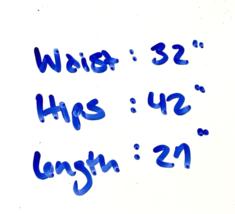 Waist: 32"
Hips: 42"
Length: 27"